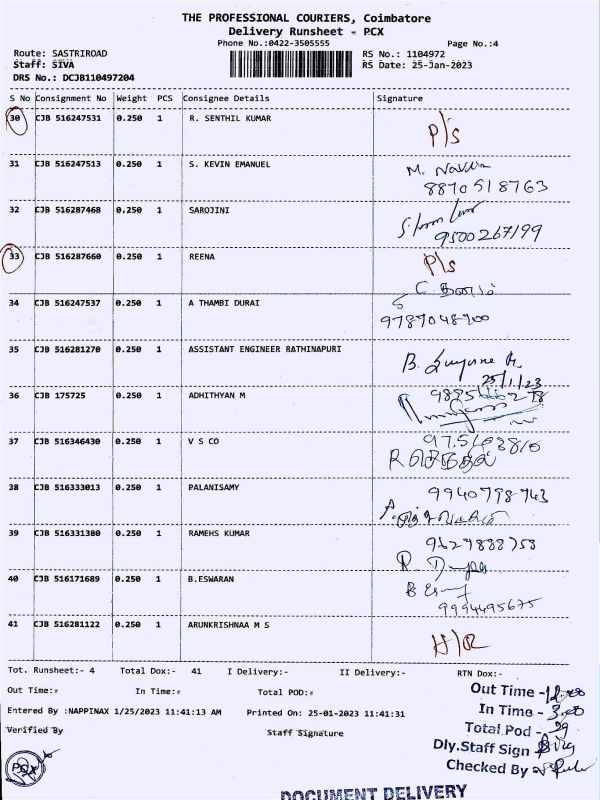 THE PROFESSIONAL COURIERS, Coimbatore
Delivery Runsheet - PCX
Phone No.:0422-3505555 Page No.:4
Route: SASTRIROAD RS No.: 1104972
Staff: SIVA RS Date: 25-Jan-2023
DRS No.: DCJB110497204
S No Consignment No Weight PCS Consignee Details Signature
30 CJB 516247531 0.250 1 R. SENTHIL KUMAR P/s
31 CJB 516247513 0.250 1 S. KEVIN EMANUEL
8870518763
32 CJB 516287468 0.250 1 SAROJINI
9500267199
33 CJB 516287660 0.250 1 REENA P/s
34 CJB 516247537 0.250 1 A THAMBI DURAI
9789048900
35 CJB 516281270 0.250 1 ASSISTANT ENGINEER RATHINAPURI
25/1/23
36 CJB 175725 0.250 1 ADHITHYAN M
37 CJB 516346430 0.250 1 V S CO
38 CJB 516333013 0.250 1 PALANISAMY 9940798743
39 CJB 516331380 0.250 1 RAMEHS KUMAR
40 CJB 516171689 0.250 1 B.ESWARAN
9994495675
41 CJB 516281122 0.250 1 ARUNKRISHNAA M S H/R
Tot. Runsheet:- 4 Total Dox:- 41 I Delivery:- II Delivery:- RTN Dox:-
Out Time:# In Time:# Total POD:#
Out Time -
Entered By :NAPPINAX 1/25/2023 11:41:13 AM Printed On: 25-01-2023 11:41:31
In Time - 3.00
Verified By Staff Signature
Total Pod - 29
Dly.Staff Sign
Checked By
PCX
DOCUMENT DELIVERY